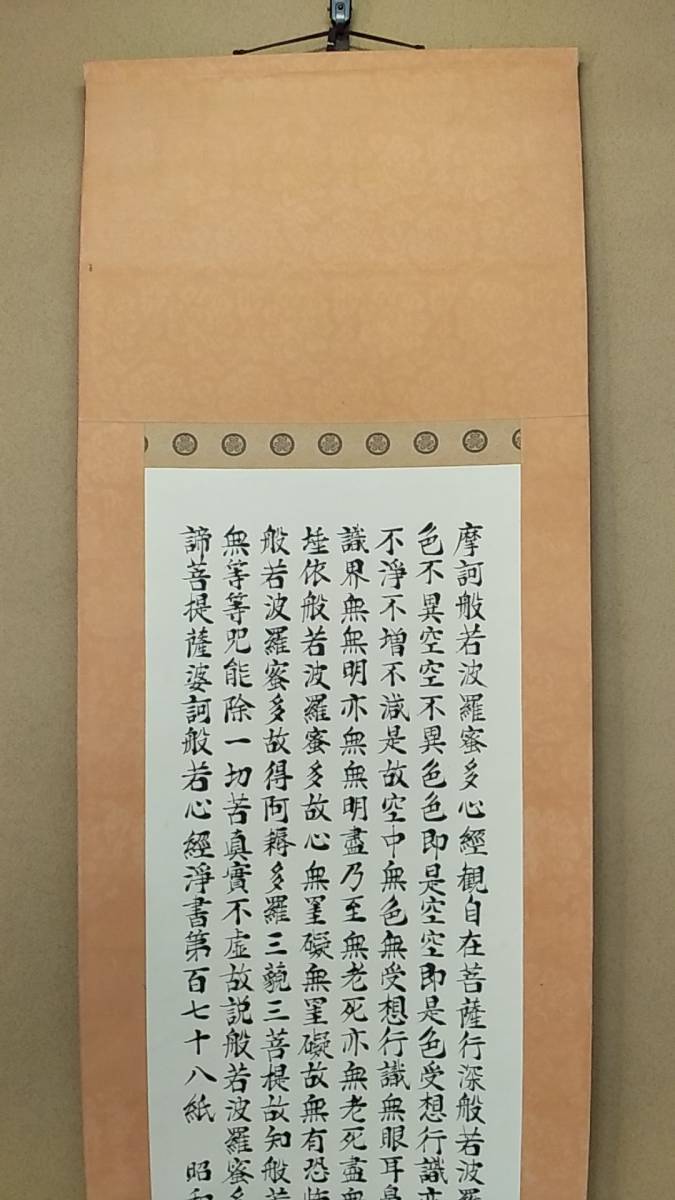 摩訶般若波羅蜜多心經觀自在菩薩行深般若波羅
色不異空空不異色色即是空空即是色受想行識亦
不淨不增不減是故空中無色無受想行識無眼耳鼻
識界無無明亦無無明盡乃至無老死亦無老死盡無
埵依般若波羅蜜多故心無罣礙無罣礙故無有恐怖
般若波羅蜜多故得阿耨多羅三藐三菩提故知般若
無等等咒能除一切苦真實不虛故説般若波羅蜜多
諦菩提薩婆訶般若心經淨書第百七十八紙 昭和